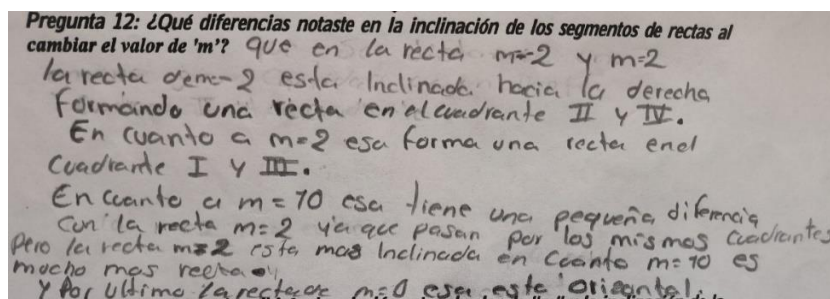 Pregunta 12: ¿Qué diferencias notaste en la inclinación de los segmentos de rectas al
cambiar el valor de 'm'? que en la recta m=-2 y m=2
la recta de m=-2 esta Inclinada hacia la derecha
Formando una recta en el cuadrante II y IV.
En cuanto a m=2 esa forma una recta en el
Cuadrante I y III.
En cuanto a m=10 esa tiene una pequeña diferencia
Con la recta m=2 ya que pasan por los mismos Cuadrantes
Pero la recta m=2 esta mas Inclinada en Cuanto m=10 es
mucho mas recta
y Por Ultimo la recta de m=0 esa esta orisontal.